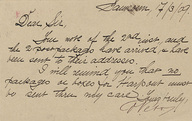 17/3/09
Dear Sir,
Your note of the 2nd inst, and
the 2 post packages have arrived, & have
been sent to their addresses.
I will remind you that no
packages or boxes for transport must
be sent thro my care.
Yours truly,